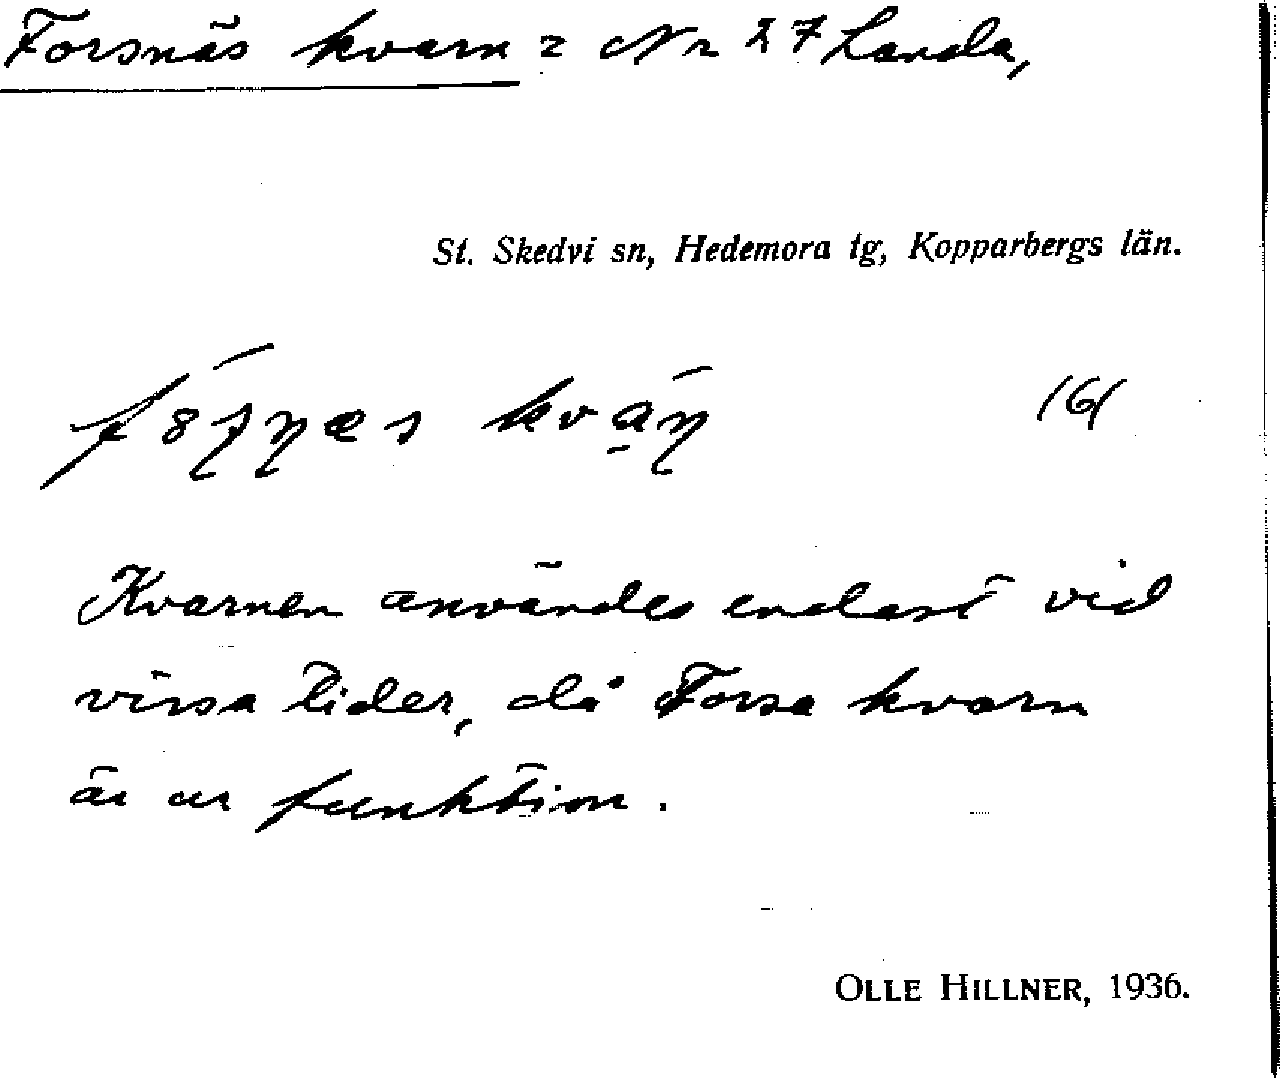 Forsnäs kvarn = Nr 27 Landa,
St. Skedvi sn, Hedemora tg, Kopparbergs län.
Kvarnen användes endast vid
vissa tider, då Forsa kvarn
är ur funktion.
OLLE HILLNER, 1936.